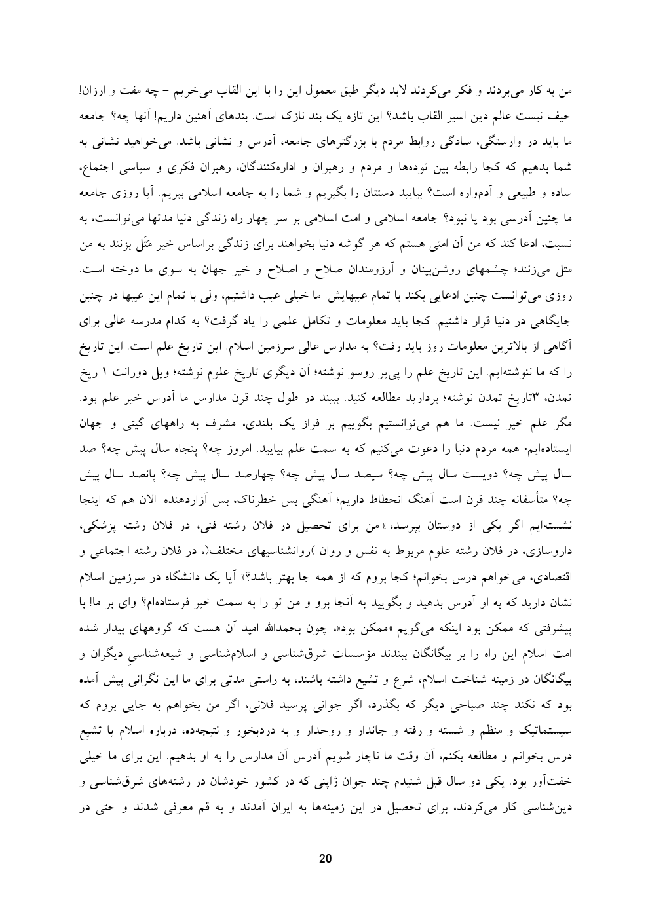 من به کار می‌بردند و فکر می‌کردند لابد دیگر طبق معمول این را با این القاب می‌خریم - چه مفت و ارزان!
حیف نیست عالم دین اسیر القاب باشد؟ این تازه یک بند نازک است. بندهای آهنین داریم! آنها چه؟ جامعه
ما باید در وارستگی، سادگی روابط مردم با بزرگترهای جامعه، آدرس و نشانی باشد. می‌خواهید نشانی به
شما بدهیم که کجا رابطه بین توده‌ها و مردم و رهبران و اداره‌کنندگان، رهبران فکری و سیاسی اجتماع،
ساده و طبیعی و آدم‌واره است؟ بیایید دستتان را بگیریم و شما را به جامعه اسلامی ببریم. آیا روزی جامعه
ما چنین آدرسی بود یا نبود؟ جامعه اسلامی و امت اسلامی بر سر چهار راه زندگی دنیا مدتها می‌توانست، به
نسبت، ادعا کند که من آن امتی هستم که هر گوشه دنیا بخواهند برای زندگی براساس خیر مَثَل بزنند به من
مثل می‌زنند؛ چشمهای روشن‌بینان و آرزومندان صلاح و اصلاح و خیر جهان به سوی ما دوخته است.
روزی می‌توانست چنین ادعایی بکند با تمام عیبهایش. ما خیلی عیب داشتیم، ولی با تمام این عیبها در چنین
جایگاهی در دنیا قرار داشتیم. کجا باید معلومات و تکامل علمی را یاد گرفت؟ به کدام مدرسه عالی برای
آگاهی از بالاترین معلومات روز باید رفت؟ به مدارس عالی سرزمین اسلام. این تاریخ علم است. این تاریخ
را که ما ننوشته‌ایم. این تاریخ علم را پی‌یر روسو نوشته؛ آن دیگری تاریخ علوم نوشته؛ ویل دورانت ۱ ریخ
تمدن، ۳تاریخ تمدن نوشته؛ بردارید مطالعه کنید. ببیند در طول چند قرن مدارس ما آدرس خبر علم بود.
مگر علم خیر نیست. ما هم می‌توانستیم بگوییم بر فراز یک بلندی، مشرف به راههای گیتی و جهان
ایستاده‌ایم؛ همه مردم دنیا را دعوت می‌کنیم که به سمت علم بیایید. امروز چه؟ پنجاه سال پیش چه؟ صد
سال پیش چه؟ دویست سال پیش چه؟ سیصد سال پیش چه؟ چهارصد سال پیش چه؟ پانصد سال پیش
چه؟ متأسفانه چند قرن است آهنگ انحطاط داریم؛ آهنگی بس خطرناک، بس آزاردهنده. الان هم که اینجا
نشسته‌ایم اگر یکی از دوستان بپرسد، «من برای تحصیل در فلان رشته فنی، در فلان رشته پزشکی،
داروسازی، در فلان رشته علوم مربوط به نفس و روان )روانشناسیهای مختلف(، در فلان رشته اجتماعی و
اقتصادی، می‌خواهم درس بخوانم؛ کجا بروم که از همه جا بهتر باشد؟» آیا یک دانشگاه در سرزمین اسلام
نشان دارید که به او آدرس بدهید و بگویید به آنجا برو و من تو را به سمت خبر فرستاده‌ام؟ وای بر ما! با
پیشرفتی که ممکن بود اینکه می‌گویم «ممکن بود»، چون بحمدالله امید آن هست که گروههای بیدار شده
امت اسلام این راه را بر بیگانگان ببندند مؤسسات شرق‌شناسی و اسلام‌شناسی و شیعه‌شناسیِ دیگران و
بیگانگان در زمینه شناخت اسلام، شرع و تشیع داشته باشند، به راستی مدتی برای ما این نگرانی پیش آمده
بود که نکند چند صباحی دیگر که بگذرد، اگر جوانی پرسید فلانی، اگر من بخواهم به جایی بروم که
سیستماتیک و منظم و شسته و رفته و جاندار و روحدار و به دردبخور و نتیجه‌ده، درباره اسلام یا تشیع
درس بخوانم و مطالعه بکنم، آن وقت ما ناچار شویم آدرس آن مدارس را به او بدهیم. این برای ما خیلی
خفت‌آور بود. یکی دو سال قبل شنیدم چند جوان ژاپنی که در کشور خودشان در رشته‌های شرق‌شناسی و
دین‌شناسی کار می‌کردند، برای تحصیل در این زمینه‌ها به ایران آمدند و به قم معرفی شدند و حتی در
20